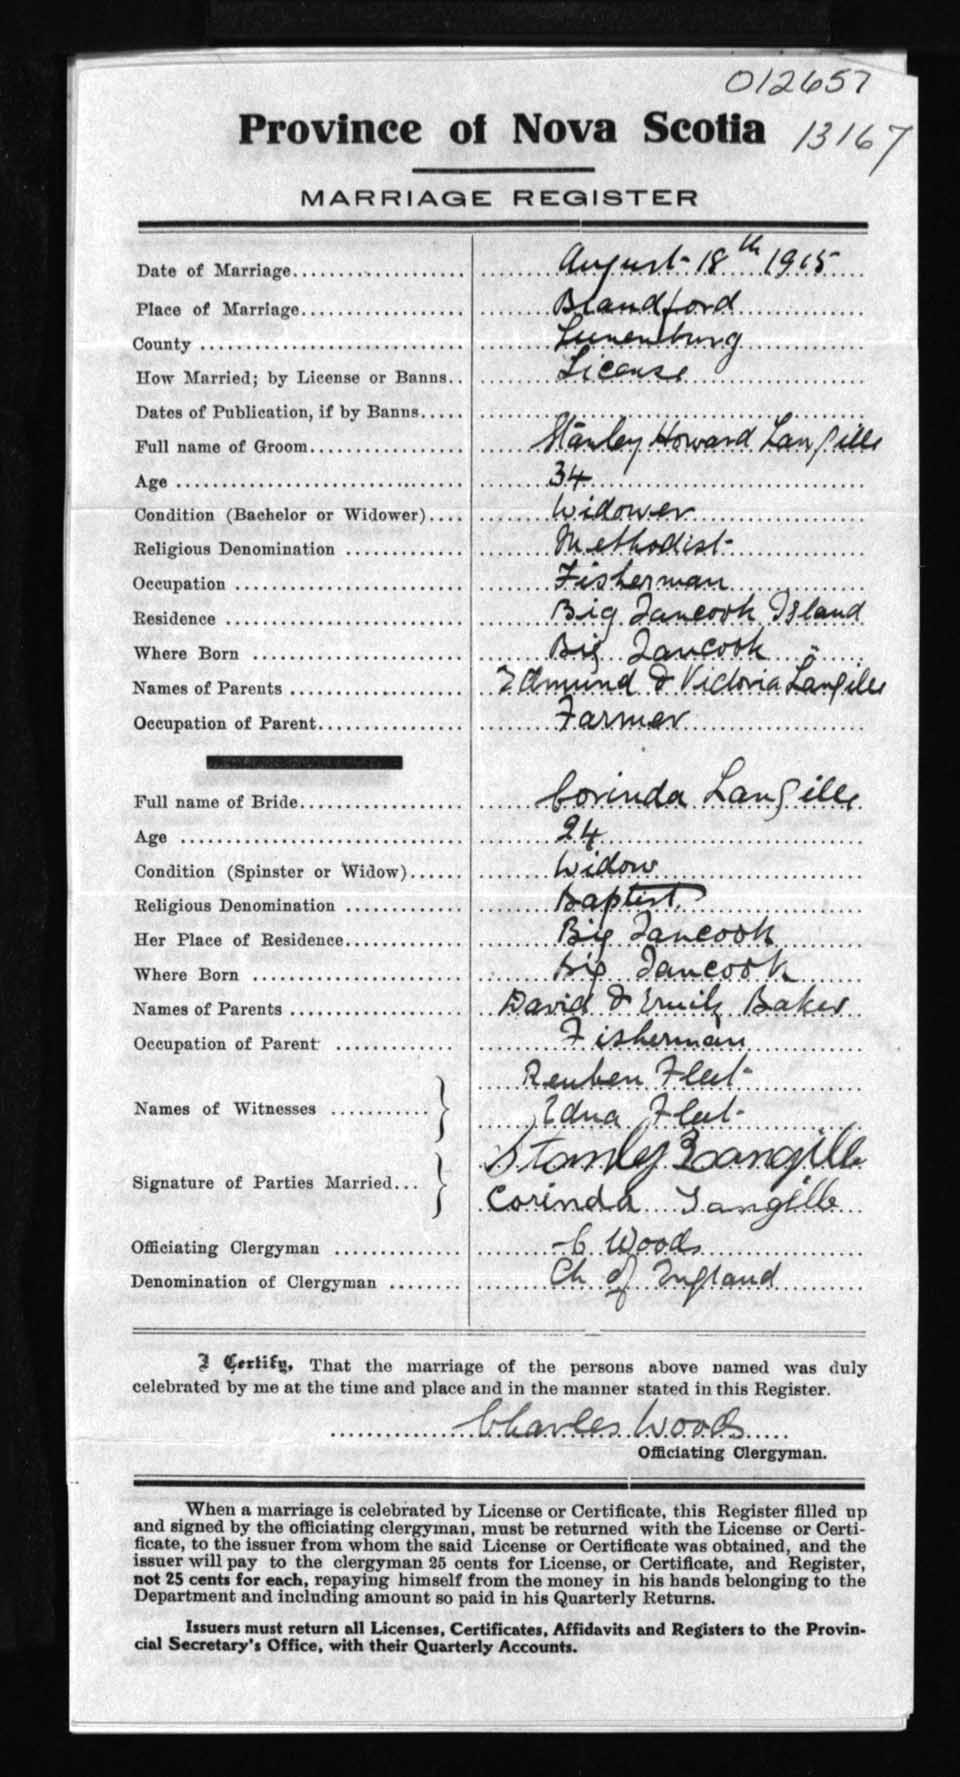 012657
Province of Nova Scotia 13167
MARRIAGE REGISTER
Date of Marriage.................. August 18th 1915
Place of Marriage.................. Blandford
County .................. Lunenburg
How Married; by License or Banns.. License
Dates of Publication, if by Banns.....
Full name of Groom.................. Stanley Howard Langille
Age .................. 34
Condition (Bachelor or Widower).... Widower
Religious Denomination .................. Methodist
Occupation .................. Fisherman
Residence .................. Big Tancook Island
Where Born .................. Big Tancook "
Names of Parents .................. Edmund & Victoria Langille
Occupation of Parent.................. Farmer
Full name of Bride.................. Corinda Langille
Age .................. 24
Condition (Spinster or Widow)...... Widow
Religious Denomination .................. Baptist
Her Place of Residence............. Big Tancook
Where Born .................. Big Tancook
Names of Parents .................. David & Emily Baker
Occupation of Parent .................. Fisherman
Names of Witnesses ........... } Reuben Fleet
Edna Fleet
Signature of Parties Married... } Stanley Langille
Corinda Langille
Officiating Clergyman .............. C Woods
Denomination of Clergyman ........ Ch of England
I Certify, That the marriage of the persons above named was duly
celebrated by me at the time and place and in the manner stated in this Register.
Charles Woods
Officiating Clergyman.
When a marriage is celebrated by License or Certificate, this Register filled up
and signed by the officiating clergyman, must be returned with the License or Certi-
ficate, to the issuer from whom the said License or Certificate was obtained, and the
issuer will pay to the clergyman 25 cents for License, or Certificate, and Register,
not 25 cents for each, repaying himself from the money in his hands belonging to the
Department and including amount so paid in his Quarterly Returns.
Issuers must return all Licenses, Certificates, Affidavits and Registers to the Provin-
cial Secretary's Office, with their Quarterly Accounts.